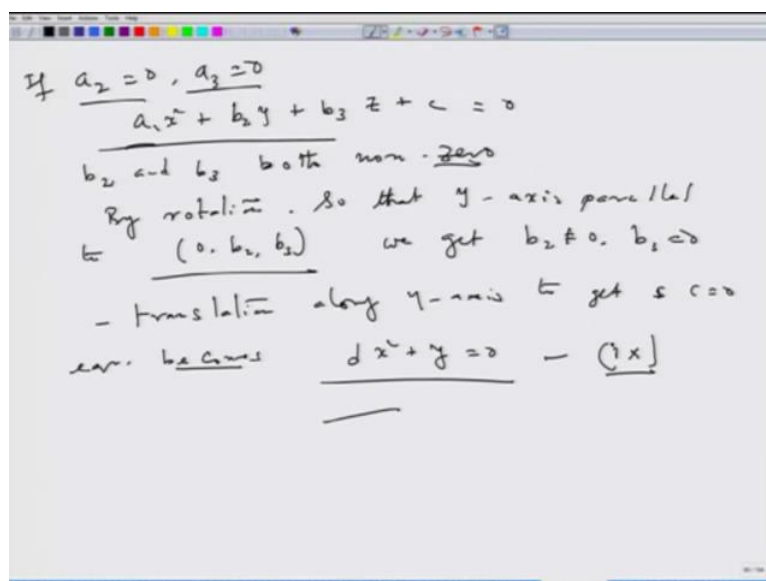 If a₂ = 0, a₃ = 0
a₁x² + b₂y + b₃ z + c = 0
b₂ and b₃ both non-zero
By rotation. So that y-axis parallel
to (0, b₂, b₃) we get b₂ ≠ 0. b₃ = 0
- translation along y-axis to get c = 0
eqn. becomes dx² + y = 0 - (ix)